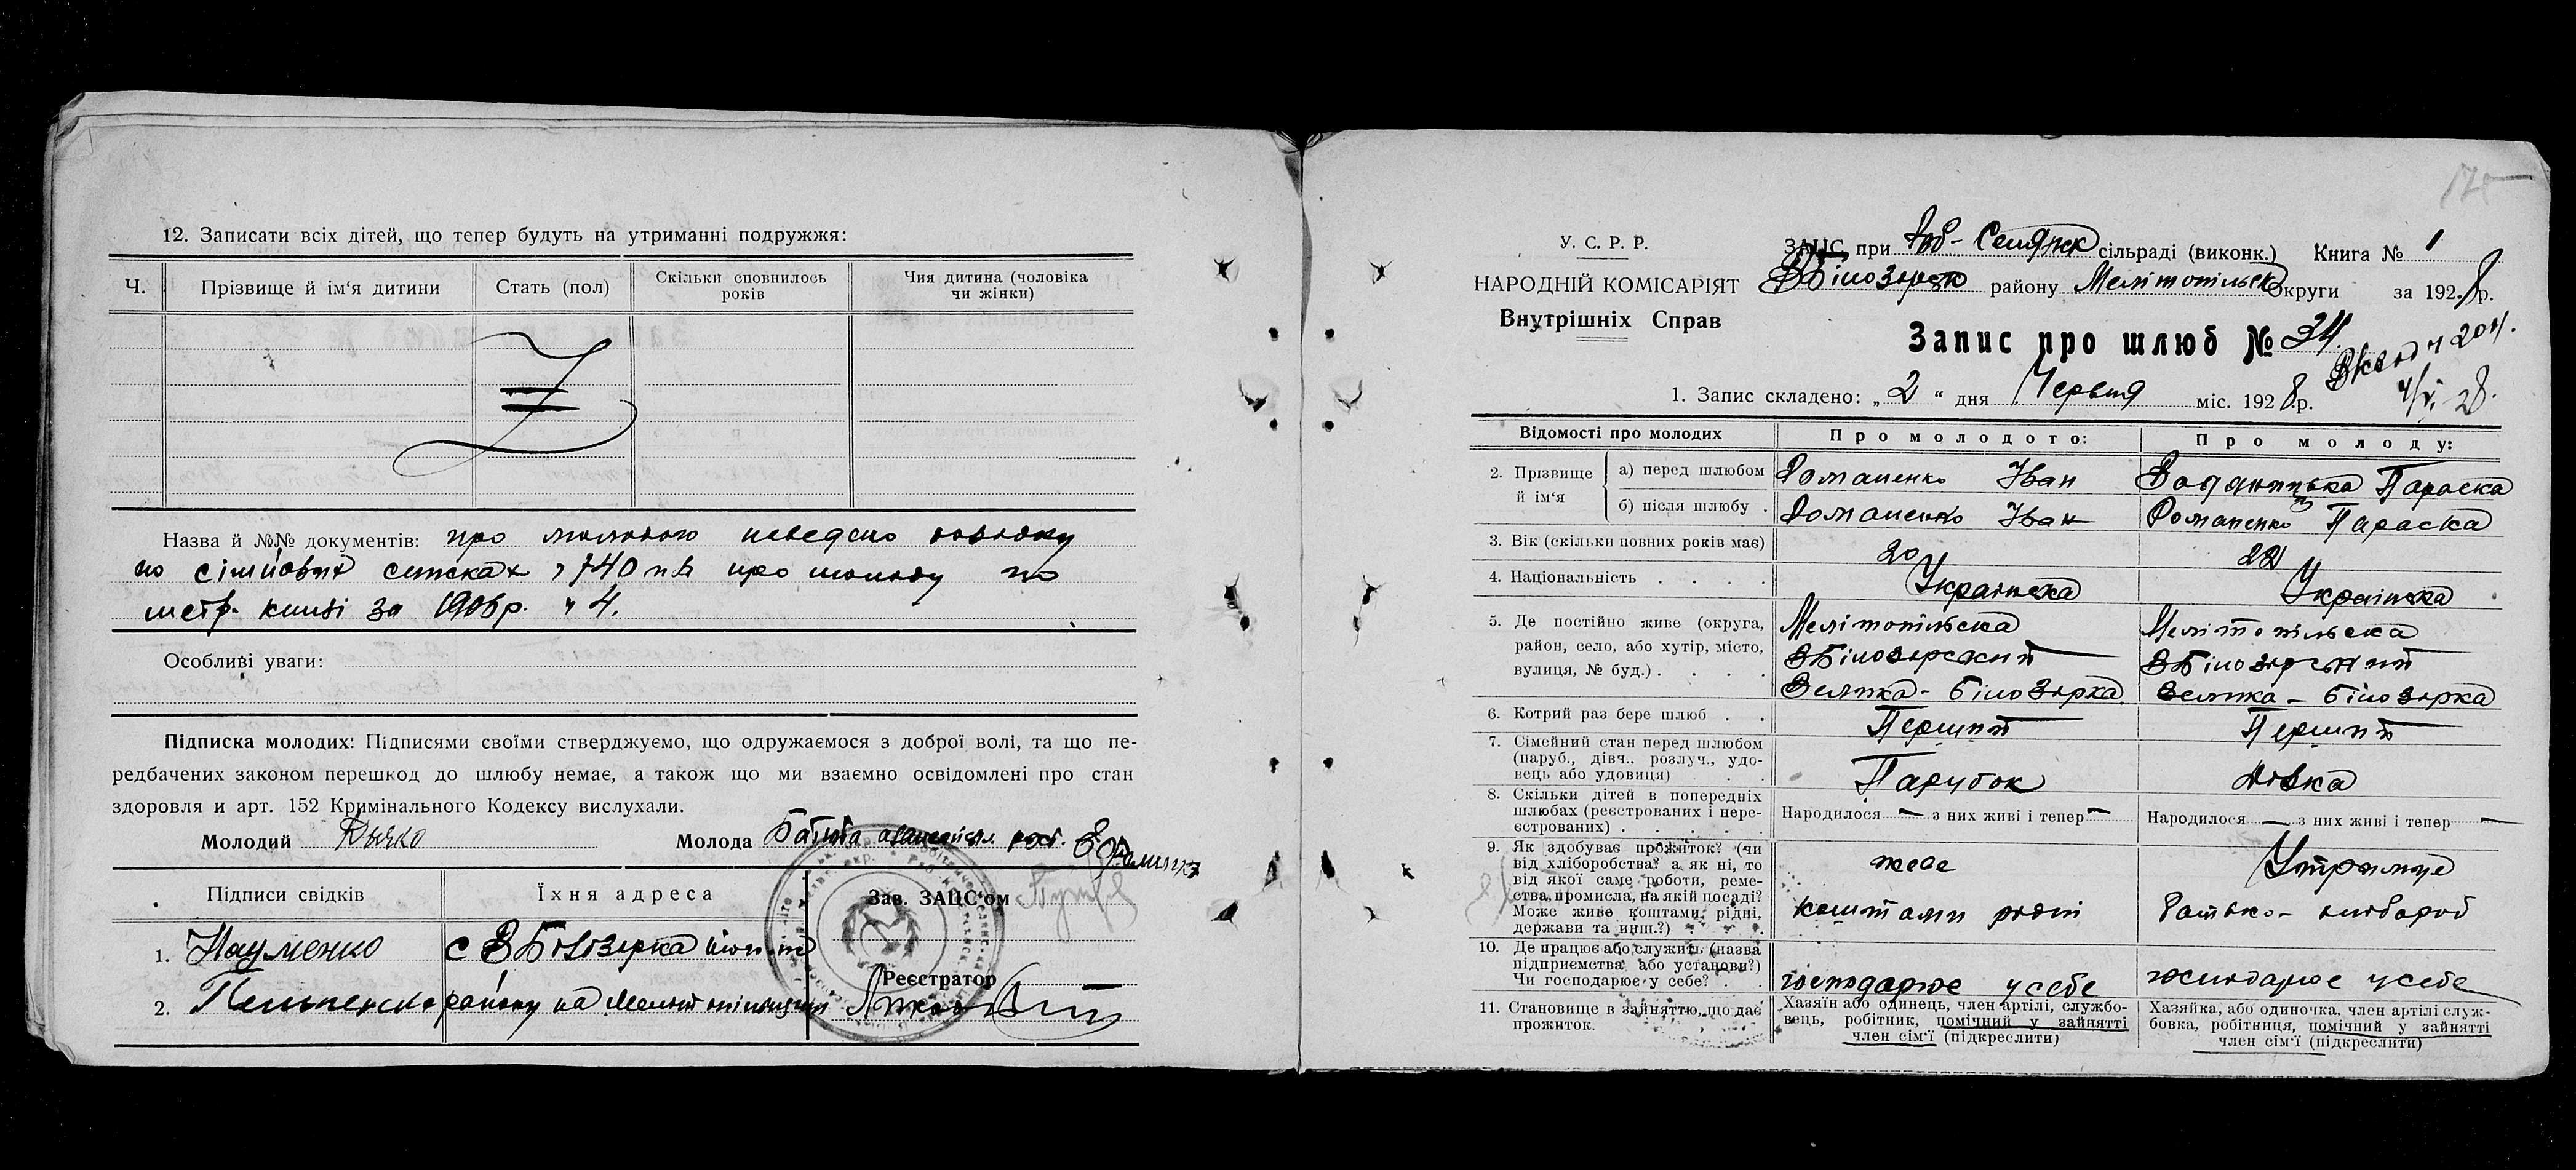 12. Записати всіх дітей, що тепер будуть на утриманні подружжя:
Ч.
Прізвище й ім‘я дитини
Стать (пол)
Скільки сповнилось
років
Чия дитина (чоловіка
чи жінки)
Назва й №№ документів: про молодого наведено довідку
по сімйовых списках 740 про молоду по
метр. книзі за 1906 р. ч 4.
Особливі уваги:
Підписка молодих: Підписями своїми стверджуємо, що одружаємося з доброї волі, та що пе-
редбачених законом перешкод до шлюбу немає, а також що ми взаємно освідомлені про стан
здоровля и арт. 152 Кримінального Кодексу вислухали.
Молодий
Молода
Підписи свідків
Їхня адреса
Зав. ЗАЦС‘ом
1. Науменко с ВБілозірка
Реєстратор
2. району на
У. С. Р. Р.
НАРОДНІЙ КОМІСАРІЯТ
Внутрішніх Справ
ЗАЦС при Роб-Селянск сільраді (виконк.) Книга № 1
ВБілозірск району Мелітопільск Округи за 1928 р.
Запис про шлюб № 34.
204.
28.
1. Запис складено: „2“ дня Червня міс. 1928 р.
Відомості про молодих
Про молодого:
Про молоду:
2. Прізвище й ім‘я
а) перед шлюбом
Романенко Іван
Параска
б) після шлюбу
Романенко Іван
Романенко Параска
3. Вік (скільки повних років має)
20
22
4. Національність
Українска
Українска
5. Де постійно живе (округа,
район, село, або хутір, місто,
вулиця, № буд.)
Мелітопільска
ВБілозірский
Велика-Білозірка
Мелітопільска
ВБілозірский
Велика-Білозірка
6. Котрий раз бере шлюб
Перший
Перший
7. Сімейний стан перед шлюбом
(паруб., дівч., розлуч., удо-
вець або удовиця)
Парубок
Дівка
8. Скільки дітей в попередніх
шлюбах (реєстрованих і нере-
єстрованих)
Народилося — з них живі і тепер —
Народилося — з них живі і тепер —
9. Як здобуває прожиток? (чи
від хліборобства? а як ні, то
від якої саме роботи, реме-
ства, промисла, на якій посаді?
Може живе коштами рідні,
держави та инш.?)
живе
коштами рідні
Утримує
батько- хлібороб
10. Де працює або служить (назва
підприємства або установи?)
Чи господарює у себе?
господарює у себе
господарює у себе
11. Становище в зайняттю, що дає
прожиток.
Хазяїн або одинець, член артілі, службо-
вець, робітник, помічний у зайнятті
член сім‘ї (підкреслити)
Хазяйка, або одиночка, член артілі служ-
бовка, робітниця, помічний у зайнятті
член сім‘ї (підкреслити)